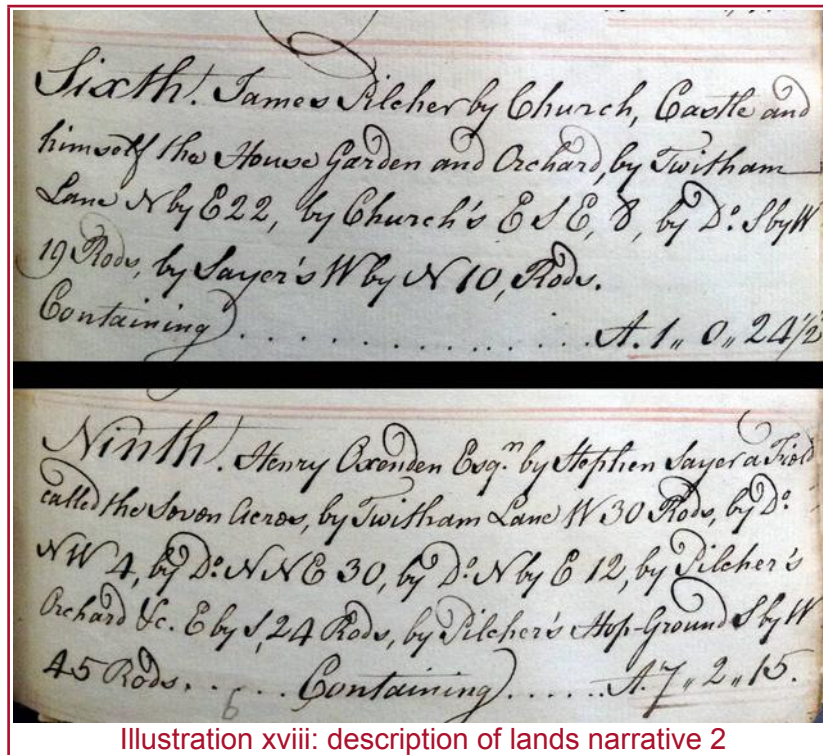 Sixth. James Pilcher by Church, Castle and
himself the House Garden and Orchard, by Twitham
Lane N by E 22, by Church's E S E, 8, by Do. S by W
19 Rods, by Sayer's W by N 10, Rods.
Containing) . . . . . . . . . . . . . . A. 1,, 0,, 24 1/2
Ninth. Henry Oxenden Esqr. by Stephen Sayer a Field
called the Seven Acres, by Twitham Lane W 30 Rods, by Do.
NW 4, by Do. N N E 30, by Do. N by E 12, by Pilcher's
Orchard &c. E by S, 24 Rods, by Pilcher's Hop-Ground S by W
45 Rods. . . . . . Containing) . . . . . . A. 7,, 2,, 15.
6
Illustration xviii: description of lands narrative 2